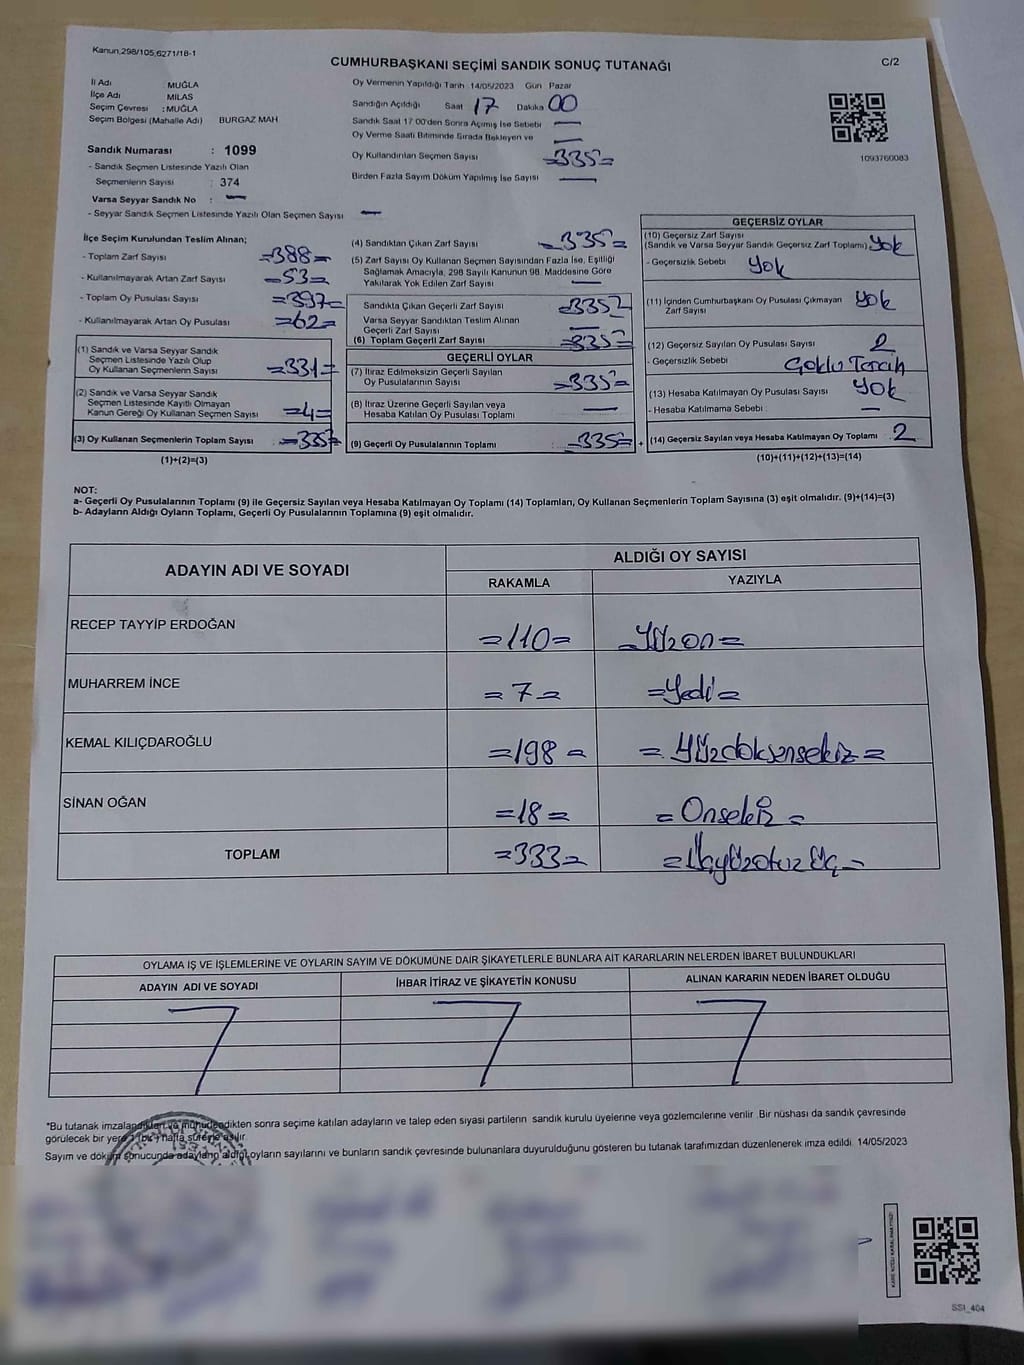 Kanun,298/105,6271/18-1
CUMHURBAŞKANI SEÇİMİ SANDIK SONUÇ TUTANAĞI
C/2
İl Adı : MUĞLA
İlçe Adı MİLAS
Seçim Çevresi : MUĞLA
Seçim Bölgesi (Mahalle Adı) BURGAZ MAH
Sandık Numarası : 1099
- Sandık Seçmen Listesinde Yazılı Olan
Seçmenlerin Sayısı : 374
Varsa Seyyar Sandık No : —
- Seyyar Sandık Seçmen Listesinde Yazılı Olan Seçmen Sayısı —
Oy Vermenin Yapıldığı Tarih 14/05/2023 Gün Pazar
Sandığın Açıldığı Saat 17 Dakika 00
Sandık Saat 17:00'den Sonra Açımış İse Sebebi —
Oy Verme Saati Bitiminde Sırada Bekleyen ve —
Oy Kullandırılan Seçmen Sayısı =335=
Birden Fazla Sayım Döküm Yapılmış İse Sayısı —
1093760083
İlçe Seçim Kurulundan Teslim Alınan;
- Toplam Zarf Sayısı =388=
- Kullanılmayarak Artan Zarf Sayısı =53=
- Toplam Oy Pusulası Sayısı =397=
- Kullanılmayarak Artan Oy Pusulası =62=
(1) Sandık ve Varsa Seyyar Sandık
Seçmen Listesinde Yazılı Olup
Oy Kullanan Seçmenlerin Sayısı =331=
(2) Sandık ve Varsa Seyyar Sandık
Seçmen Listesinde Kayıtlı Olmayan
Kanun Gereği Oy Kullanan Seçmen Sayısı =4=
(3) Oy Kullanan Seçmenlerin Toplam Sayısı =335=
(1)+(2)=(3)
(4) Sandıktan Çıkan Zarf Sayısı =335=
(5) Zarf Sayısı Oy Kullanan Seçmen Sayısından Fazla İse, Eşitliği
Sağlamak Amacıyla, 298 Sayılı Kanunun 98. Maddesine Göre
Yakılarak Yok Edilen Zarf Sayısı —
Sandıkta Çıkan Geçerli Zarf Sayısı =335=
Varsa Seyyar Sandıktan Teslim Alınan
Geçerli Zarf Sayısı —
(6) Toplam Geçerli Zarf Sayısı =335=
GEÇERLİ OYLAR
(7) İtiraz Edilmeksizin Geçerli Sayılan
Oy Pusulalarının Sayısı =335=
(8) İtiraz Üzerine Geçerli Sayılan veya
Hesaba Katılan Oy Pusulası Toplamı —
(9) Geçerli Oy Pusulalarının Toplamı : =335= +
GEÇERSİZ OYLAR
(10) Geçersiz Zarf Sayısı
(Sandık ve Varsa Seyyar Sandık Geçersiz Zarf Toplamı) Yok
- Geçersizlik Sebebi Yok
(11) İçinden Cumhurbaşkanı Oy Pusulası Çıkmayan
Zarf Sayısı Yok
(12) Geçersiz Sayılan Oy Pusulası Sayısı 2
- Geçersizlik Sebebi : Çoklu Tercih
(13) Hesaba Katılmayan Oy Pusulası Sayısı Yok
- Hesaba Katılmama Sebebi : —
(14) Geçersiz Sayılan veya Hesaba Katılmayan Oy Toplamı : 2
(10)+(11)+(12)+(13)=(14)
NOT:
a- Geçerli Oy Pusulalarının Toplamı (9) ile Geçersiz Sayılan veya Hesaba Katılmayan Oy Toplamı (14) Toplamları, Oy Kullanan Seçmenlerin Toplam Sayısına (3) eşit olmalıdır. (9)+(14)=(3)
b- Adayların Aldığı Oyların Toplamı, Geçerli Oy Pusulalarının Toplamına (9) eşit olmalıdır.
ADAYIN ADI VE SOYADI
ALDIĞI OY SAYISI
RAKAMLA YAZIYLA
RECEP TAYYİP ERDOĞAN =110= =Yüzon=
MUHARREM İNCE =7= =Yedi=
KEMAL KILIÇDAROĞLU =198= =Yüzdoksensekiz=
SİNAN OĞAN =18= =Onsekiz=
TOPLAM =333= =Üçyüzotuz Üç=
OYLAMA İŞ VE İŞLEMLERİNE VE OYLARIN SAYIM VE DÖKÜMÜNE DAİR ŞİKAYETLERLE BUNLARA AİT KARARLARIN NELERDEN İBARET BULUNDUKLARI
ADAYIN ADI VE SOYADI İHBAR İTİRAZ VE ŞİKAYETİN KONUSU ALINAN KARARIN NEDEN İBARET OLDUĞU
*Bu tutanak imzalandıktan ve mühürlendikten sonra seçime katılan adayların ve talep eden siyasi partilerin sandık kurulu üyelerine veya gözlemcilerine verilir. Bir nüshası da sandık çevresinde
görülecek bir yere 1 (bir) hafta süreyle asılır.
Sayım ve döküm sonucunda adayların aldığı oyların sayılarını ve bunların sandık çevresinde bulunanlara duyurulduğunu gösteren bu tutanak tarafımızdan düzenlenerek imza edildi. 14/05/2023
KARE KODU KARALAMAYINIZ!
SSI_404